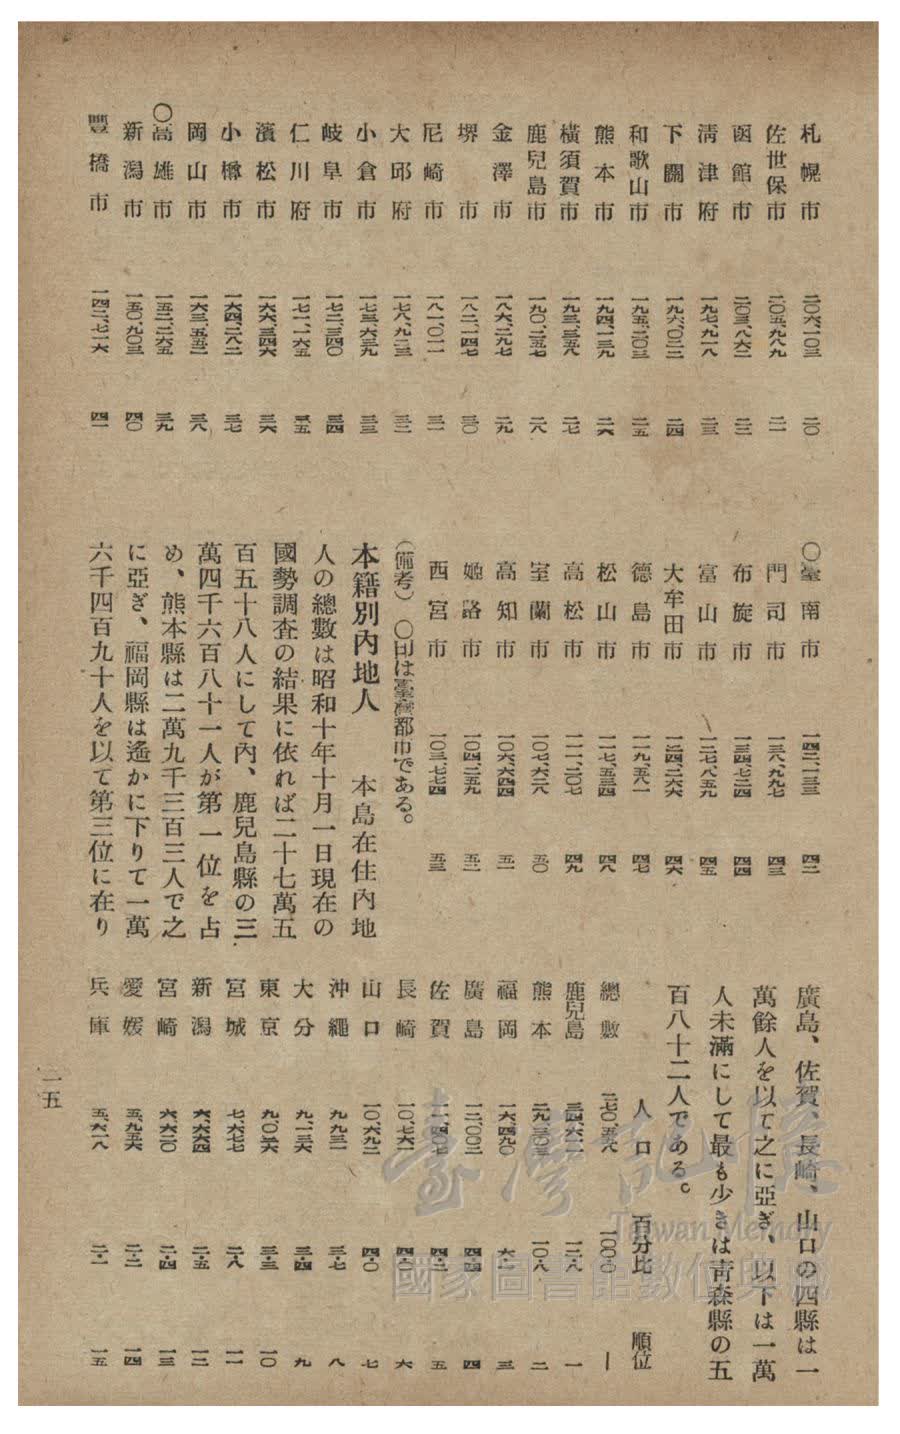 札幌市 二〇六、一〇三 二〇
佐世保市 二〇五、九八九 二一
函館市 二〇三、八六二 二二
淸津府 一九七、九一八 二三
下關市 一九六、〇二二 二四
和歌山市 一九五、二〇三 二五
熊本市 一九四、一三九 二六
橫須賀市 一九三、三五八 二七
鹿兒島市 一九〇、二五七 二八
金澤市 一八六、二九七 二九
堺市 一八二、一四七 三〇
尼崎市 一八一、〇一一 三一
大邱府 一七八、九二三 三二
小倉市 一七三、六三九 三三
岐阜市 一七二、三四〇 三四
仁川府 一七一、一六五 三五
濱松市 一六六、三四六 三六
小樽市 一六四、二八二 三七
岡山市 一六三、五五二 三八
〇高雄市 一五二、二六五 三九
新潟市 一五〇、九〇三 四〇
豐橋市 一四二、七一六 四一
〇臺南市 一四二、一三三 四二
門司市 一三八、九九七 四三
布旋市 一三四、七二四 四四
富山市 一二七、八五九 四五
大牟田市 一二四、二六六 四六
德島市 一一九、五八一 四七
松山市 一一七、五三四 四八
高松市 一一一、二〇七 四九
室蘭市 一〇七、六二八 五〇
高知市 一〇六、六四四 五一
姬路市 一〇四、二五九 五二
西宮市 一〇三、七七四 五三
(備考) 〇印は臺灣都市である。
本籍別內地人 本島在住內地
人の總數は昭和十年十月一日現在の
國勢調査の結果に依れば二十七萬五
百五十八人にして內、鹿兒島縣の三
萬四千六百八十一人が第一位を占
め、熊本縣は二萬九千三百三人で之
に亞ぎ、福岡縣は遙かに下りて一萬
六千四百九十人を以て第三位に在り
廣島、佐賀、長崎、山口の四縣は一
萬餘人を以て之に亞ぎ、以下は一萬
人未滿にして最も少きは靑森縣の五
百八十二人である。
人口 百分比 順位
總數 二七〇、五五八 一〇〇・〇 ー
鹿兒島 三四、六一一 一二・八 一
熊本 二九、三〇三 一〇・八 二
福岡 一六、四九〇 六・一 三
廣島 一二、〇〇三 四・四 四
佐賀 一一、四〇七 四・二 五
長崎 一〇、七六一 四・〇 六
山口 一〇、六九二 四・〇 七
沖繩 九、九三一 三・七 八
大分 九、一三六 三・四 九
東京 九、〇二六 三・三 一〇
宮城 七、六七七 二・八 一一
新潟 六、六六四 二・五 一二
宮崎 六、六二〇 二・四 一三
愛媛 五、九五六 二・二 一四
兵庫 五、六一八 二・一 一五
一五
臺灣記憶
Taiwan Memory
國家圖書館數位典藏